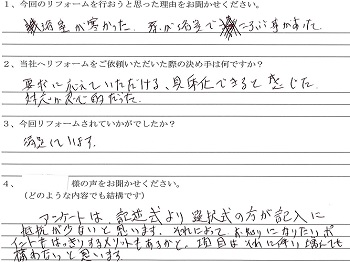 1、今回のリフォームを行おうと思った理由をお聞かせください。
浴室が寒かった。母が浴室でころぶ事があった。
2、当社へリフォームをご依頼いただいた際の決め手は何ですか?
要求に応えていただける、具体化できると感じた。
対応が良心的だった。
3、今回リフォームされていかがでしたか?
満足しています。
4、
様の声をお聞かせください。
(どのような内容でも結構です)
アンケートは記述式より選択式の方が記入に
抵抗が少ないと思います。それによってお知りになりたいポ
イントもはっきりするメリットもあるかと、項目はそれに伴い増えても
構わないと思います